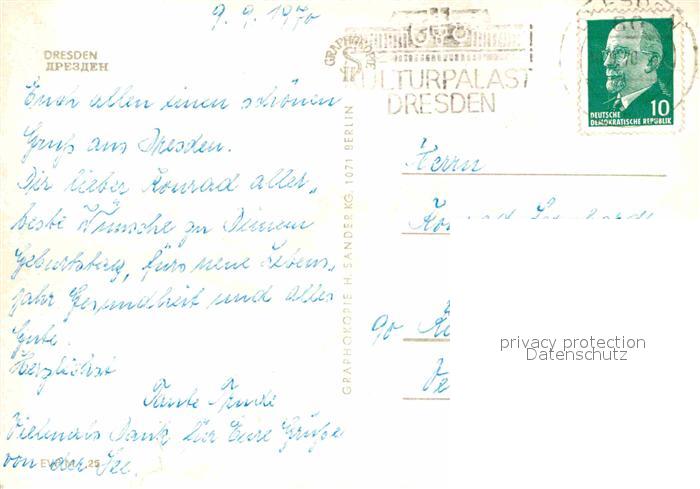 9.9.1970
DRESDEN
ДРЕЗДЕН
Euch allen einen schönen
Gruß aus Dresden.
Dir lieber Konrad aller-
beste Wünsche zu Deinem
Geburtstag, fürs neue Lebens-
jahr Gesundheit und alles
Gute.
Herzlichst
Tante
Vielmals Dank für Eure Grüße
von der See.
EVP M -,25
GRAPHOKOPIE
GRAPHOKOPIE H. SANDER KG. 1071 BERLIN
KULTURPALAST
DRESDEN
10
DEUTSCHE
DEMOKRATISCHE REPUBLIK
Herrn
privacy protection
Datenschutz